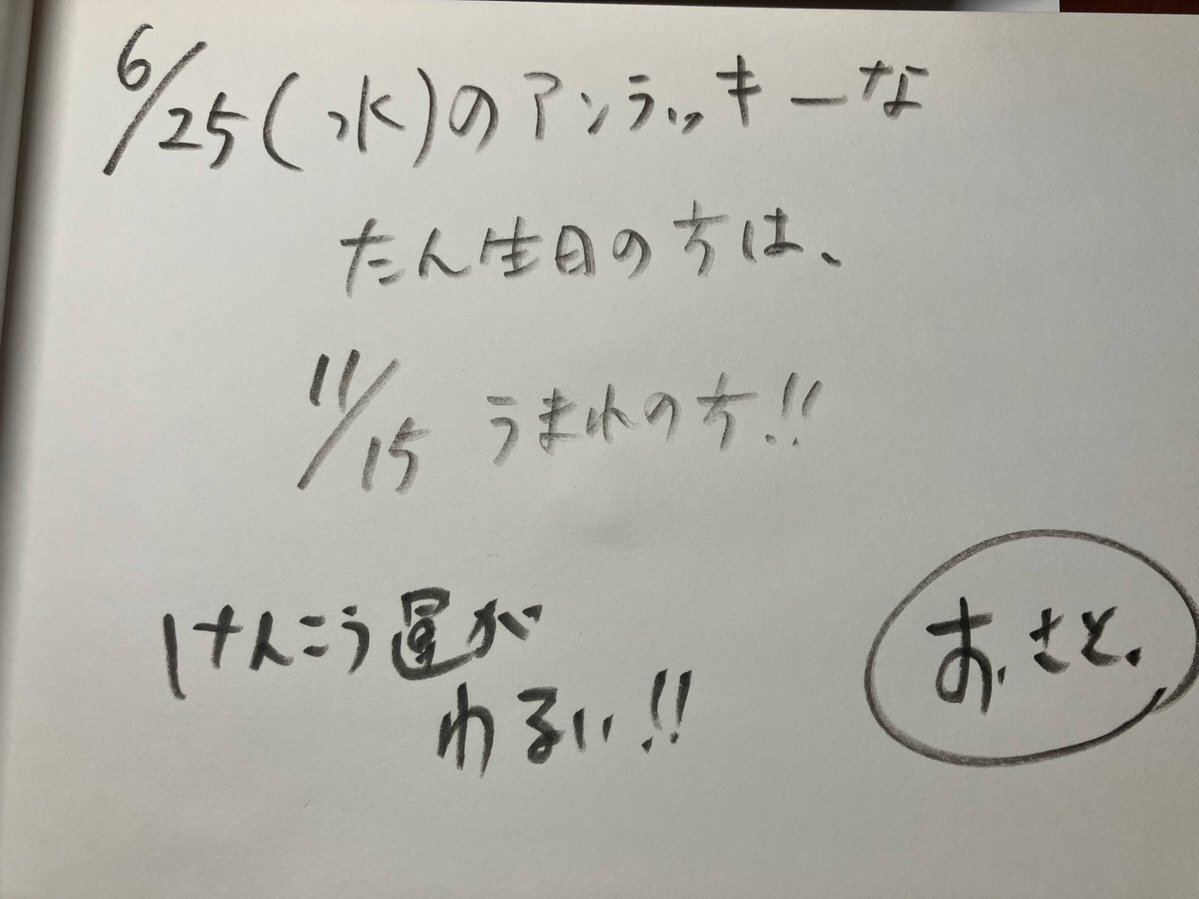 6/25(水)のアンラッキーな
たん生日の方は、
11/15 うまれの方!!
けんこう運が
わるい!!
お.さと.